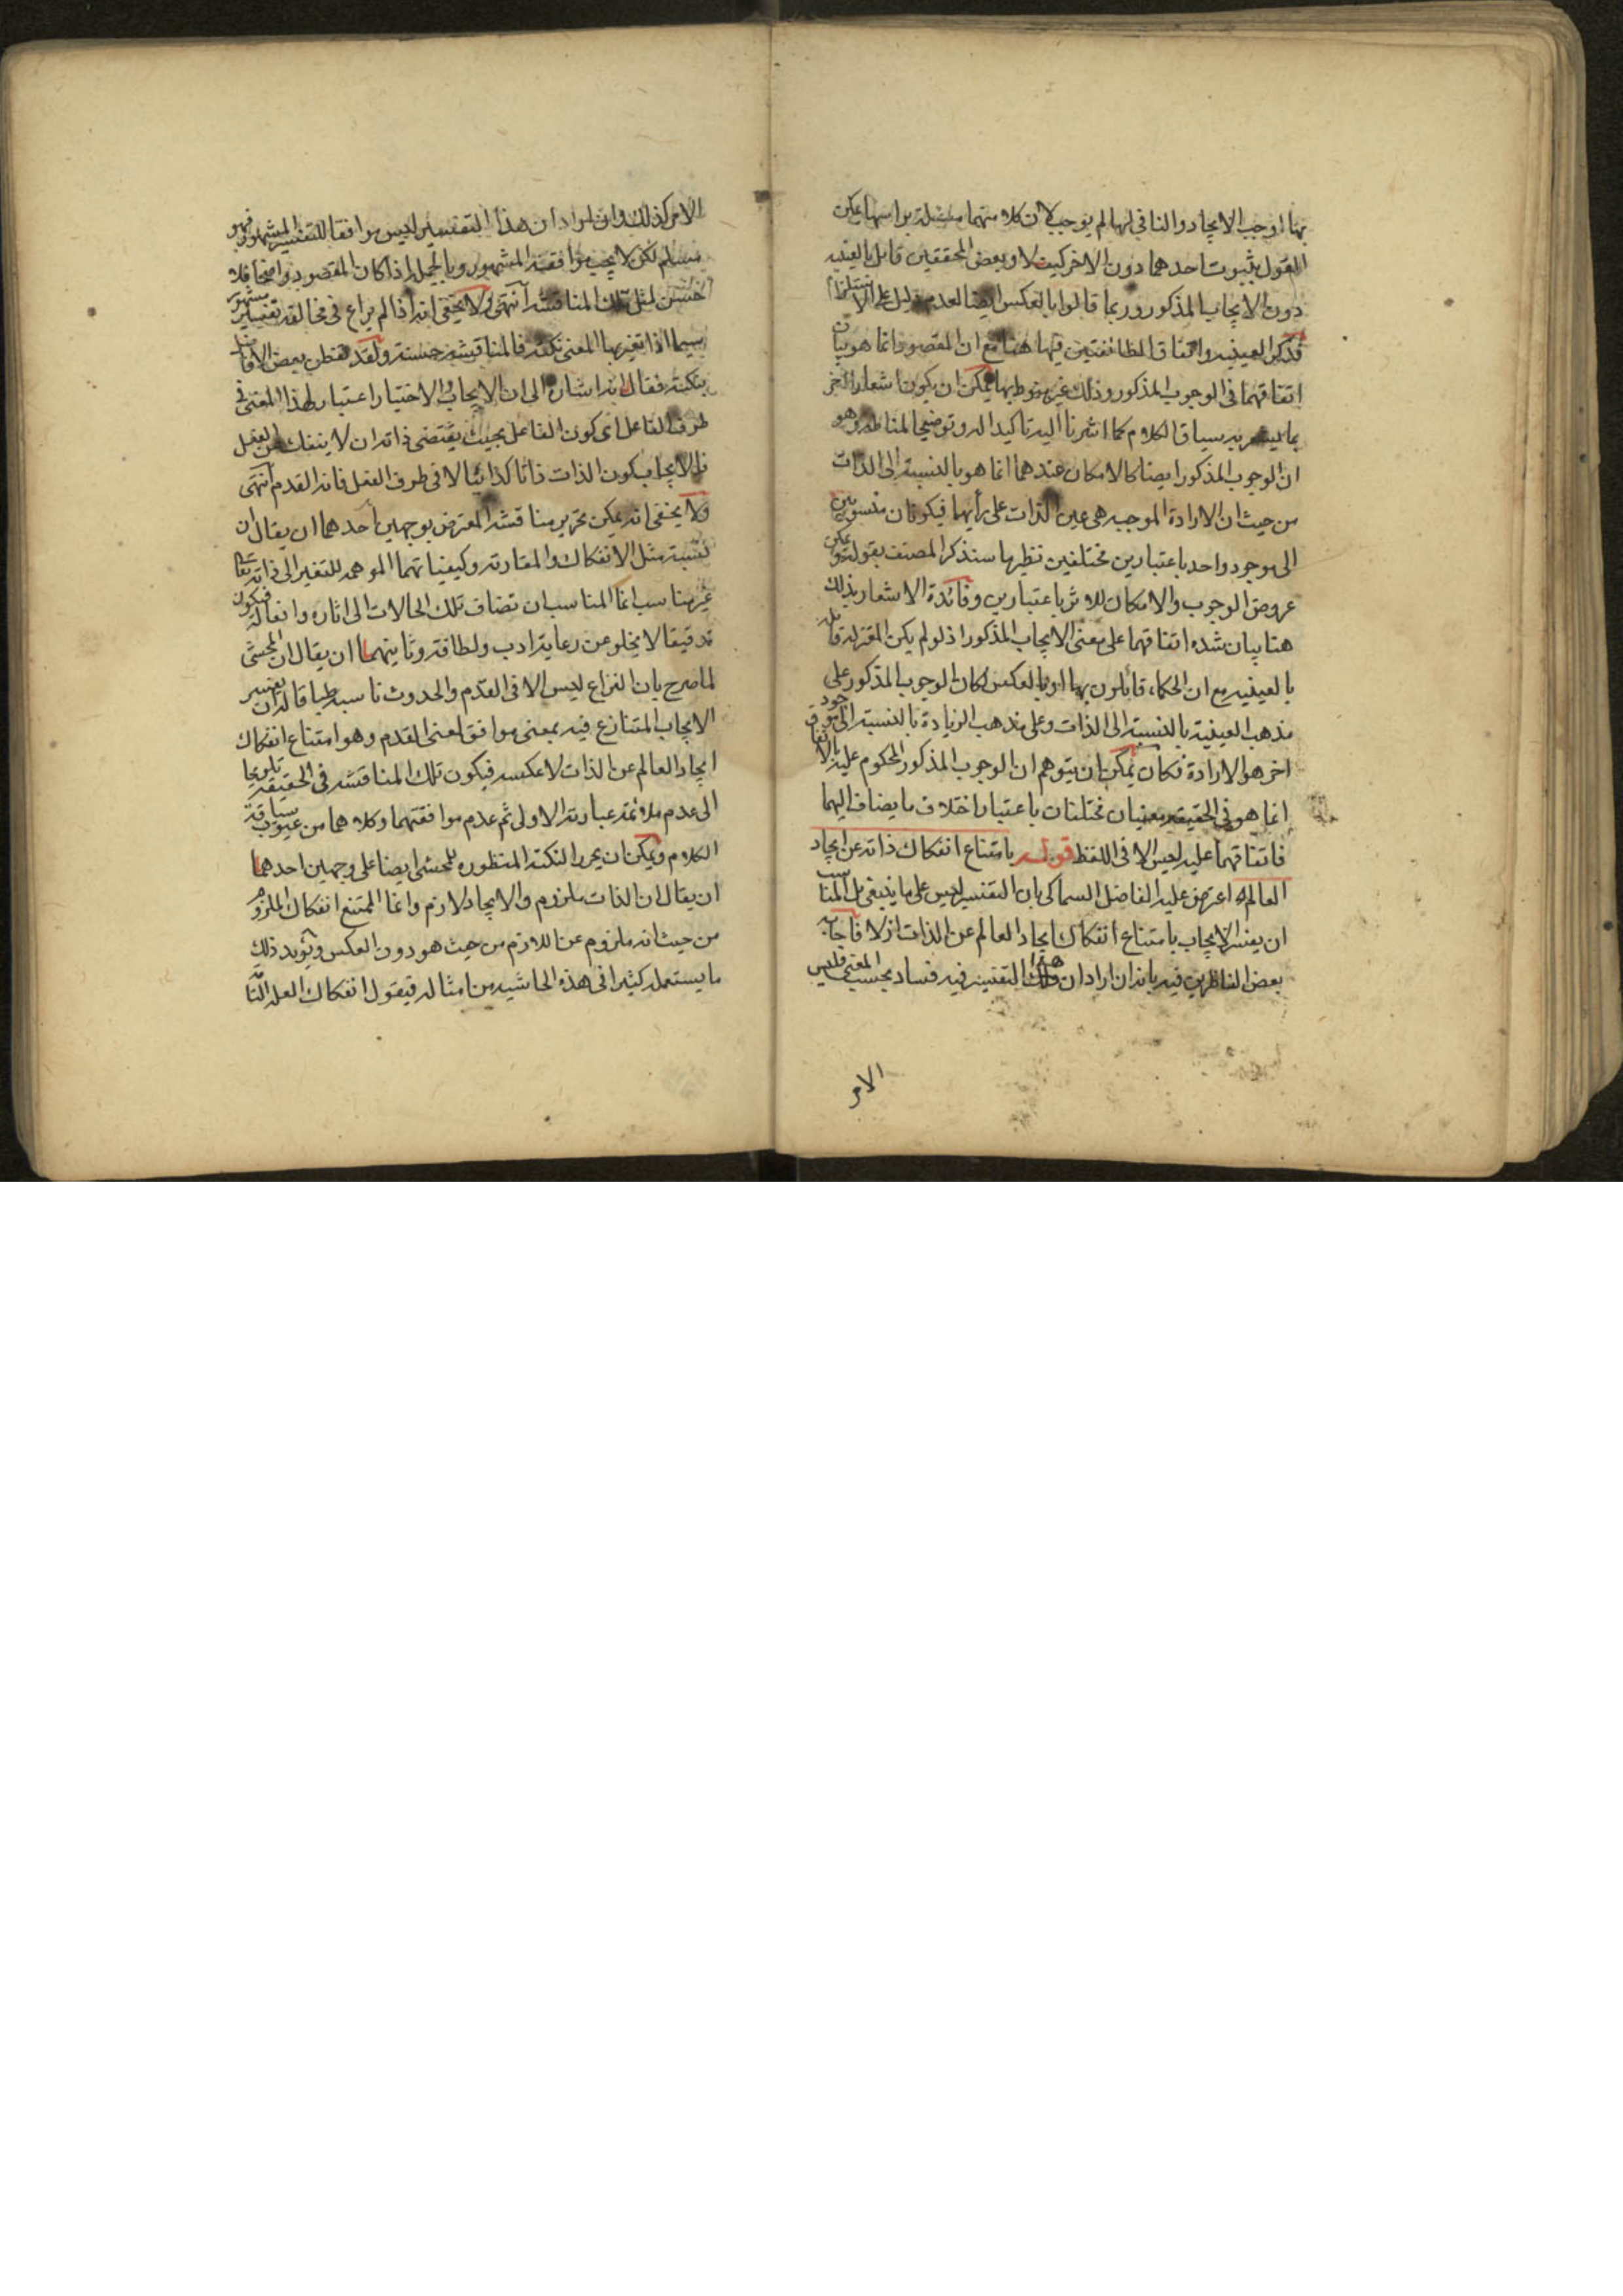 بها اوجب الايجاد والنافي لها لم يوجب لان كلا منهما مسئلة براسها يمكن
القول بثبوت احدهما دون الاخر كيف لا وبعض المحققين قائل بالعينيه
دون الايجاب المذكور وربما قالوا بالعكس ايضا لعدم دليل على الاستلزام
فذكر العينيه واتفاق الطائفتين فيها هنا مع ان المقصود انما هو بيان
اتفاقهما في الوجوب المذكور وذلك غير منوط بها يمكن ان يكون اشعارا لخبر
بما يشعر به سياق الكلام كما اشرنا اليه تاكيدا له وتوضيحا للمناط وهو
ان الوجوب المذكور ايضا كالامكان عندهما انما هو بالنسبة الى الذات
من حيث ان الارادة الموجبه هي عين الذات على رأيهما فيكونان منسوبين
الى موجود واحد باعتبارين مختلفين نظيرها سنذكر المصنف بقوله يمكن
عروض الوجوب والامكان للاثر باعتبارين وفائدة الاشعار بذلك
هنا بيان شده اتفاقهما على معنى الايجاب المذكور اذ لو لم يكن المعتزلة قائله
بالعينيه مع ان الحكماء قائلون بها او بالعكس لكان الوجوب المذكور على
مذهب العينية بالنسبة الى الذات وعلى مذهب الزيادة بالنسبة الى موجود
اخر هو الارادة فكان يمكن ان يتوهم ان الوجوب المذكور المحكوم عليه بالاتفاق
انما هو في الحقيقه معنيان مختلفان باعتبار اختلاف ما يضاف اليهما
فاتفاقهما عليه ليس الا في اللفظ قوله بامتناع انفكاك ذاته عن ايجاد
العالم اه اعترض عليه الفاضل السماكي بان التفسير ليس على ما ينبغي بل المناسب
ان يفسر الايجاب بامتناع انفكاك ايجاد العالم عن الذات ازلا فاجابه
بعض الناظرين فيه بانه ان اراد ان هذا التفسير فيه فساد بحسب المعنى فليس
الامر
الامر كذلك وان اراد ان هذا التفسير ليس موافقا للتفسير المشهور فهو
مسلم لكن لا يجب موافقة المشهور وبالجمله اذا كان المقصود واضحا فلا
حسن لمثل تلك المناقشه انتهى ولا يخفى انه اذا لم يراع في مخالفه تفسير مشهور
سيما اذا تغير بها المعنى نكته فالمناقشه حسنة ولقد تفطن بعض الافاضل
بنكتة فقال انه اشاره الى ان الايجاب والاختيار اعتبار لهذا المعنى في
طرف الفاعل اى كون الفاعل بحيث يقتضى ذاته ان لا ينفك عن الفعل
فالايجاب كون الذات ذاتا كذائيا لا في طرف الفعل فانه القدم انتهى
ولا يخفى انه يمكن تحرير مناقشه المعترض بوجهين احدهما ان يقال ان
نسبة مثل الانفكاك والمقارنه وكيفياتهما الموهمه للتغير الى ذاته تعالى
غير مناسب انما المناسب ان تضاف تلك الحالات الى اثاره وافعاله فيكون
تدقيقا لا يخلو عن رعاية ادب ولطافة وثانيهما ان يقال ان المحشى
لما صرح بان النزاع ليس الا في القدم والحدوث ناسب سياقه ان تفسير
الايجاب المتنازع فيه بمعنى موافق لمعنى القدم وهو امتناع انفكاك
ايجاد العالم عن الذات لا عكسه فيكون تلك المناقشه في الحقيقه تلويحا
الى عدم ملائمة عبارته الاولى ثم عدم موافقتهما وكلاهما من عيوب سياقة
الكلام ويمكن ان يحرر النكتة المنظوره للمحشى ايضا على وجهين احدهما
ان يقال ان الذات ملزوم والايجاد لازم وانما الممتنع انفكاك الملزوم
من حيث انه ملزوم عن اللازم من حيث هو دون العكس ويؤيد ذلك
ما يستعمل كثيرا في هذه الحاشيه من امثاله فيقول انفكاك العله التامة